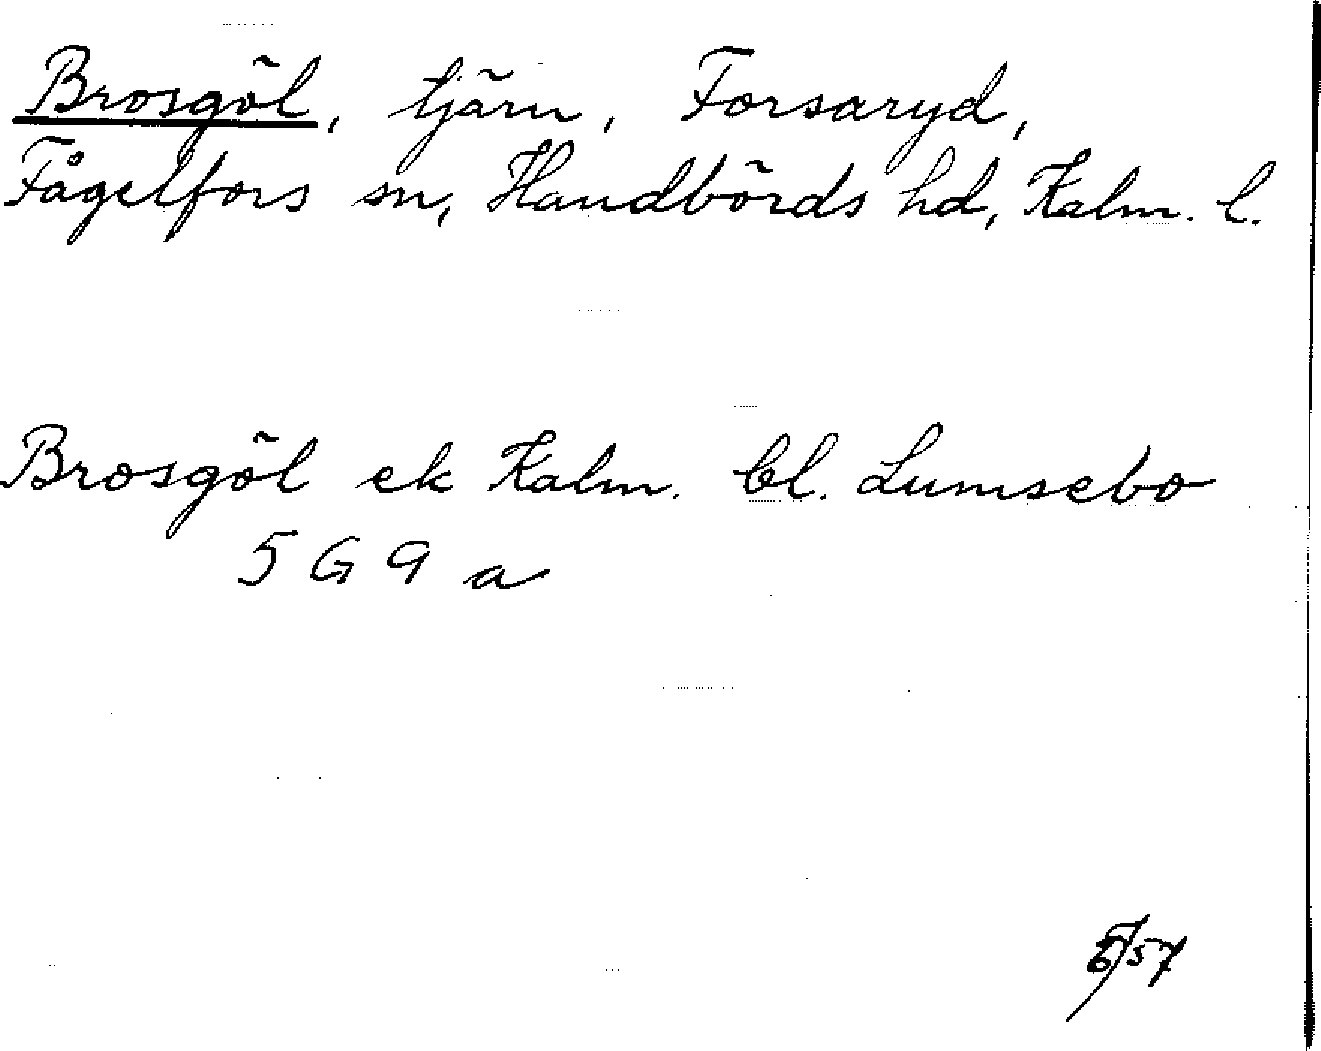 Brosgöl, tjärn, Forsaryd,
Fågelfors sn, Handbörds hd, Kalm. l.
Brosgöl ek Kalm. bl. Lumsebo
5 G 9 a